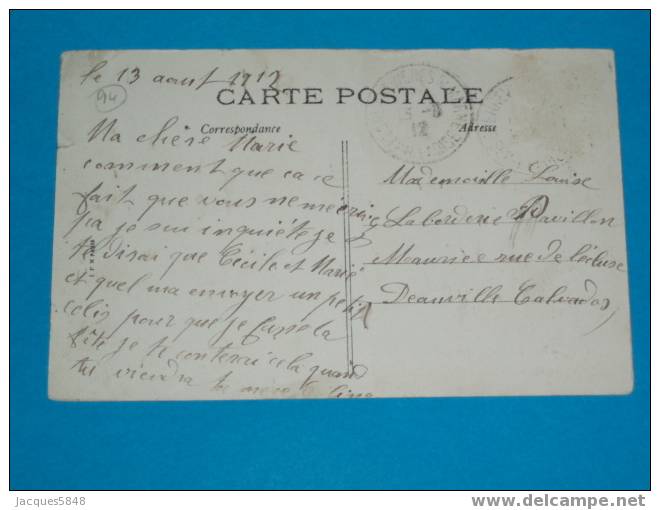 le 13 aout 1912
94
CARTE POSTALE
Correspondance
Adresse
Ma chère Marie
comment que ca ce
fait que vous ne mécrivez
pa je sui inquiéte je
te dirai que Cécile et Marie
et quel ma envoyer un petit
colis pour que je fusse la
fête je te conterai cela quand
tu viendra ta
Mademoiselle Louise
Laborderie Pavillon
Maurice rue de lécluse
Deauville Calvados
Jacques5848
delcampe.net